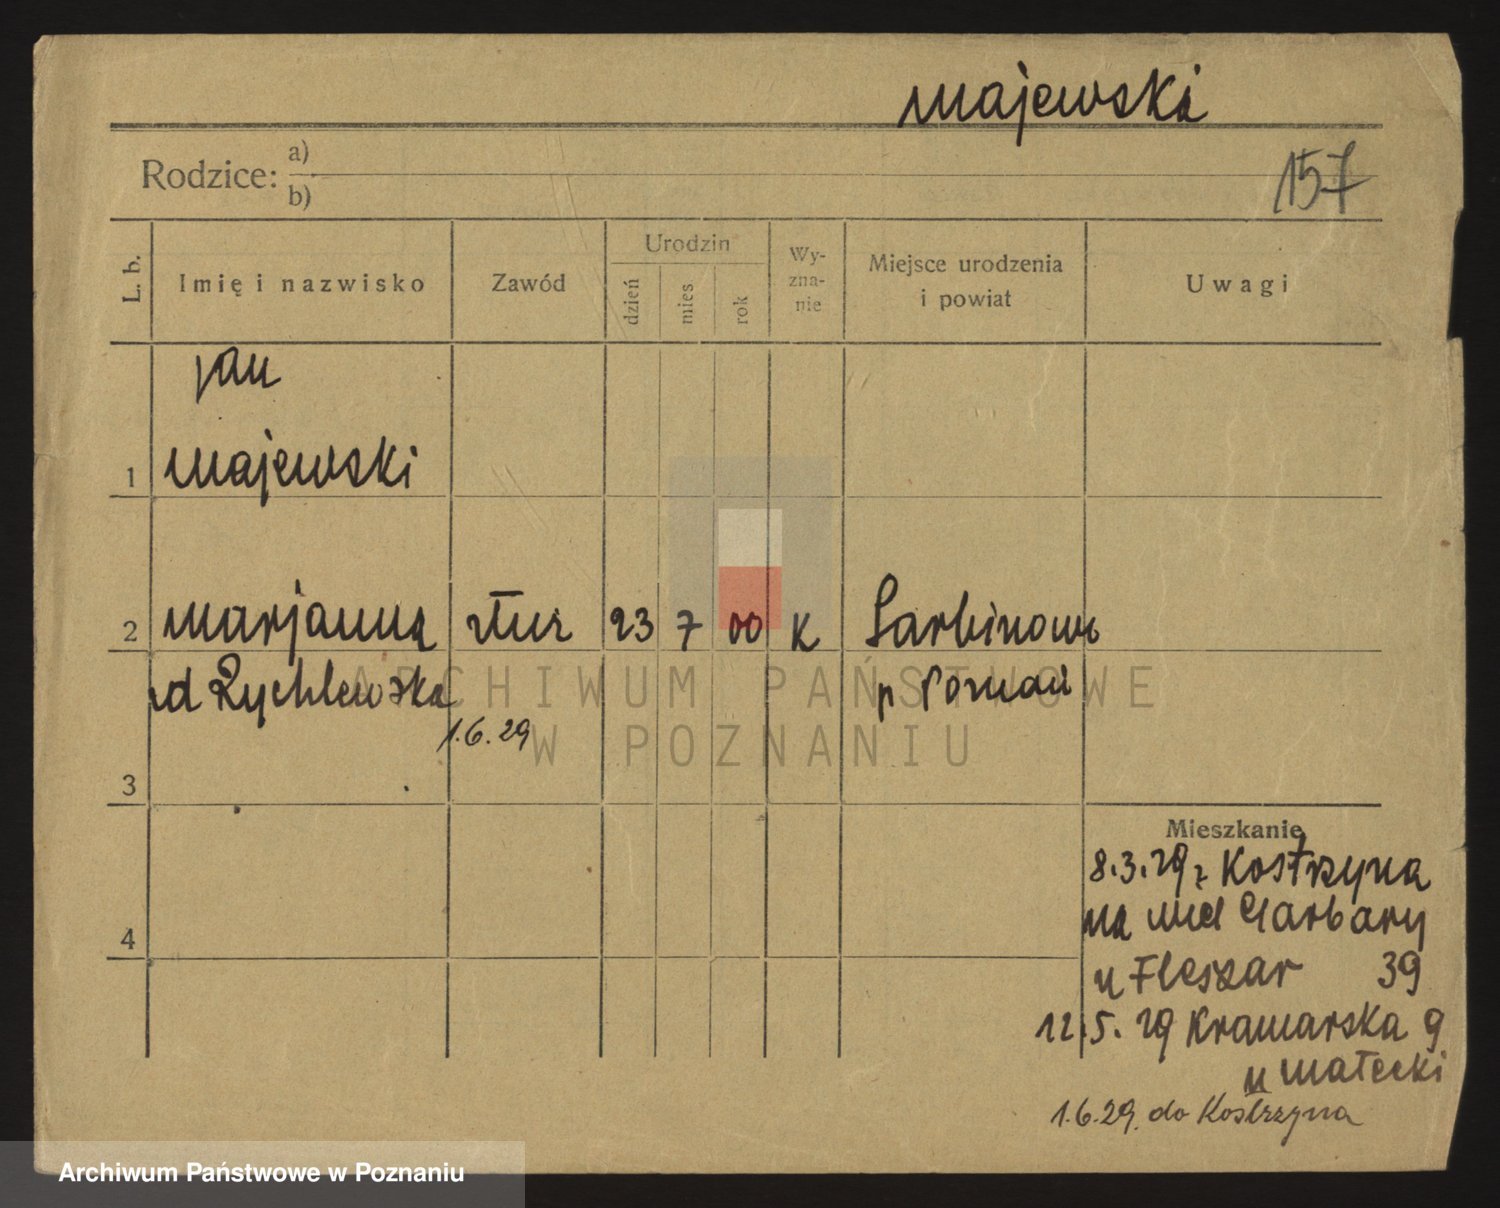 Majewski
Rodzice: a)
b)
157
L. b.
Imię i nazwisko
Zawód
Urodzin
dzień
mies
rok
Wy-
zna-
nie
Miejsce urodzenia
i powiat
Uwagi
Jan
1 Majewski
2 Marjanna 23 7 00 K Sarbinowo
d Rychlewska p Poznań
1.6.29
3
4
Mieszkanie
8.3.29 z Kostrzyna
na Garbary
u Fleszar 39
12.5.29 Kramarska 9
u Małecki
1.6.29. do Kostrzyna
ARCHIWUM PAŃSTWOWE
W POZNANIU
Archiwum Państwowe w Poznaniu